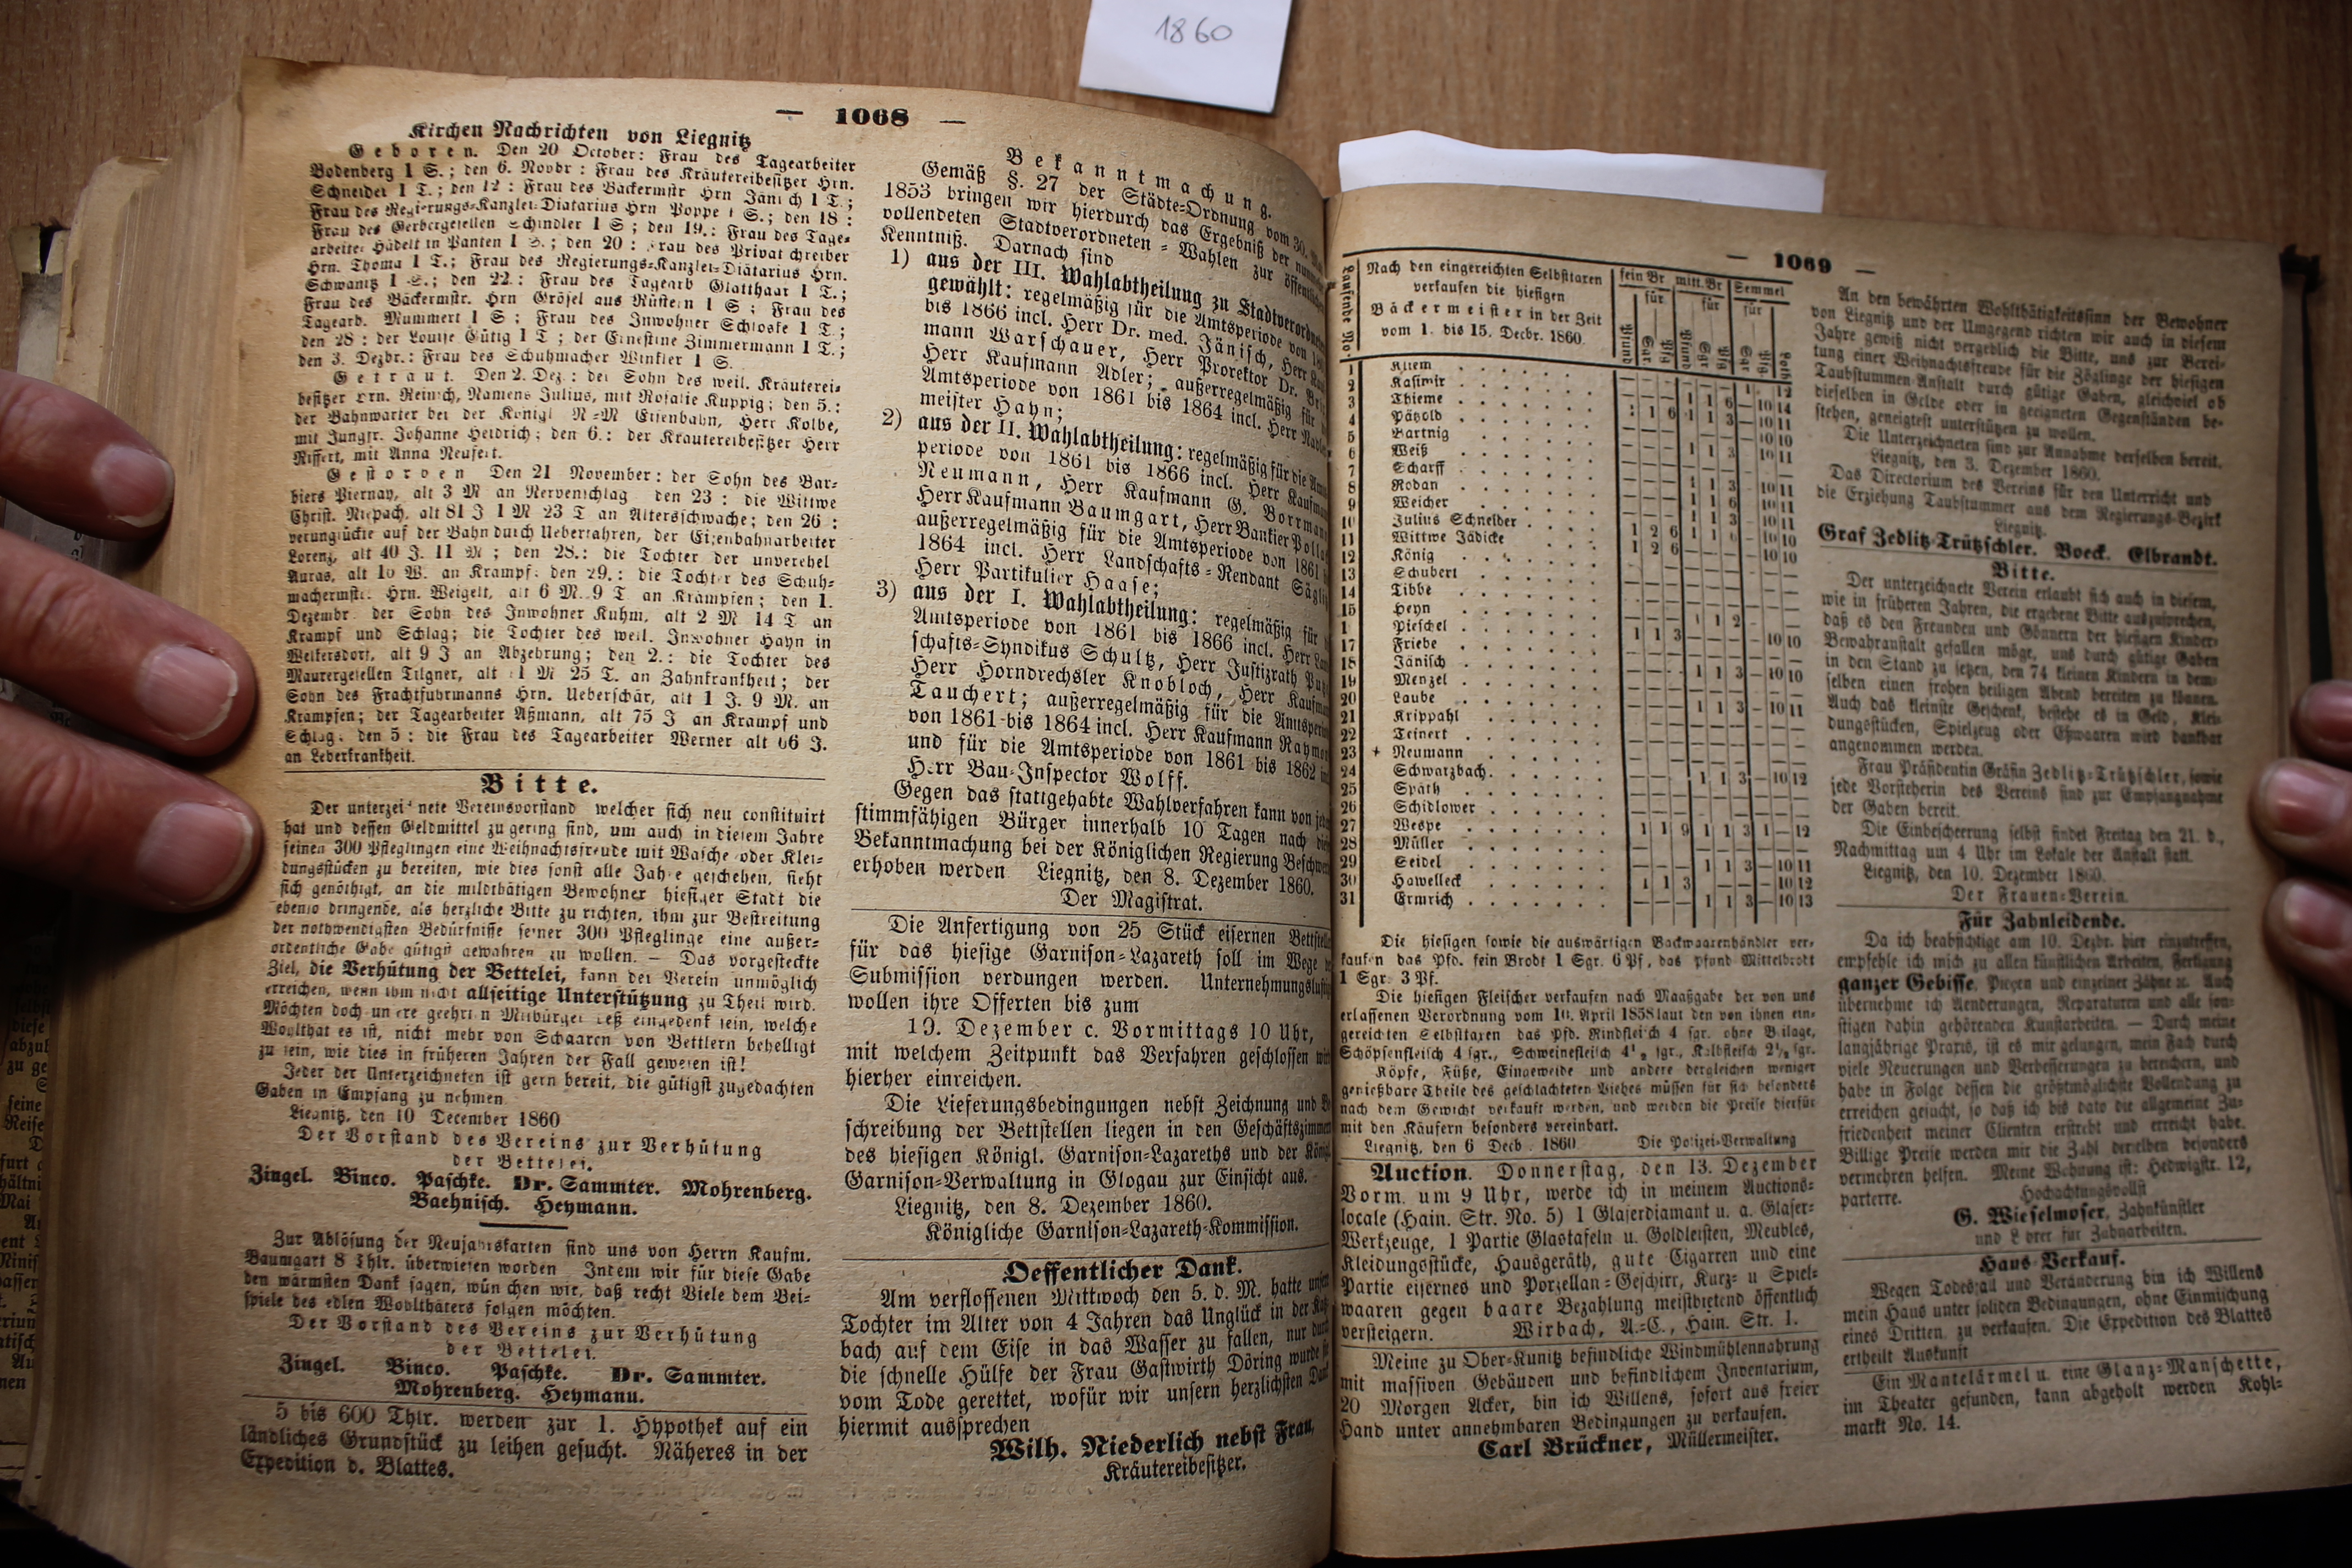 1860
— 1068 —
Kirchen Nachrichten von Liegnitz
Geboren. Den 20 October: Frau des Tagearbeiter
Bodenberg 1 S.; den 6. Novbr: Frau des Kräutereibesitzer Hrn.
Schneider 1 T.; den 12: Frau des Bäckermstr Hrn Jänisch 1 T.;
Frau des Regierungs-Kanzlei-Diätarius Hrn Poppe 1 S.; den 18:
Frau des Gerbergesellen Schindler 1 S; den 19.: Frau des Tage-
arbeiter Hädelt in Panten 1 S.; den 20: Frau des Privatschreiber
Hrn. Thoma 1 T.; Frau des Regierungs-Kanzlei-Diätarius Hrn.
Schwanitz 1 S.; den 22.: Frau des Tagearb Glatthaar 1 T.;
Frau des Bäckermstr. Hrn Grösel aus Rüstern 1 S; Frau des
Tagearb. Mummert 1 S; Frau des Inwohner Schloske 1 T;
den 28: der Louise Gütig 1 T; der Ernestine Zimmermann 1 T.;
den 3. Dezbr.: Frau des Schuhmacher Winkler 1 S.
Getraut. Den 2. Dez.: der Sohn des weil. Kräuterei-
besitzer Hrn. Reinsch, Namens Julius, mit Rosalie Kuppig; den 5.:
der Bahnwärter bei der Königl N=M Eisenbahn, Herr Kolbe,
mit Jungfr. Johanne Heidrich; den 6.: der Kräutereibesitzer Herr
Riffert, mit Anna Neufert.
Gestorben Den 21 November: der Sohn des Bar-
biers Piernay, alt 3 M an Nervenschlag den 23: die Wittwe
Christ. alt 81 J 1 M 23 T an Altersschwäche; den 26:
verunglückte auf der Bahn durch Ueberfahren, der Eisenbahnarbeiter
Lorenz, alt 40 J. 11 M; den 28.: die Tochter der unverehel
Auras, alt 10 W. an Krampf; den 29.: die Tochter des Schuh-
machermstr. Hrn. Weigelt, alt 6 M. 9 T an Krämpfen; den 1.
Dezembr der Sohn des Inwohner Kuhm, alt 2 M 14 T an
Krampf und Schlag; die Tochter des weil. Inwohner Hayn in
Weikersdorf, alt 9 J an Abzehrung; den 2.: die Tochter des
Maurergesellen Tilgner, alt M 25 T. an Zahnkrankheit; der
Sohn des Frachtfuhrmanns Hrn. Ueberschär, alt 1 J. 9 M. an
Krämpfen; der Tagearbeiter Aßmann, alt 75 J an Krampf und
Schlag; den 5: die Frau des Tagearbeiter Werner alt 66 J.
an Leberkrankheit.
Bitte.
Der unterzeichnete Vereinsvorstand welcher sich neu constituirt
hat und dessen Geldmittel zu gering sind, um auch in diesem Jahre
seinen 300 Pfleglingen eine Weihnachtsfreude mit Wäsche oder Klei-
dungsstücken zu bereiten, wie dies sonst alle Jahre geschehen, sieht
sich genöthigt, an die mildthätigen Bewohner hiesiger Stadt die
ebenso dringende, als herzliche Bitte zu richten, ihm zur Bestreitung
der nothwendigsten Bedürfnisse seiner 300 Pfleglinge eine außer-
ordentliche Gabe gütigst gewähren zu wollen. — Das vorgesteckte
Ziel, die Verhütung der Bettelei, kann der Verein unmöglich
erreichen, wenn ihm nicht allseitige Unterstützung zu Theil wird.
Möchten doch unsere geehrten Mitbürger deß eingedenk sein, welche
Wohlthat es ist, nicht mehr von Schaaren von Bettlern behelligt
zu sein, wie dies in früheren Jahren der Fall gewesen ist!
Jeder der Unterzeichneten ist gern bereit, die gütigst zugedachten
Gaben in Empfang zu nehmen
Liegnitz, den 10 December 1860
Der Vorstand des Vereins zur Verhütung
der Bettelei.
Zingel. Binco. Paschke. Dr. Sammter. Mohrenberg.
Baehnisch. Heymann.
Zur Ablösung der Neujahrskarten sind uns von Herrn Kaufm.
Baumgart 8 Thlr. überwiesen worden Indem wir für diese Gabe
den wärmsten Dank sagen, wünschen wir, daß recht Viele dem Bei-
spiele des edlen Wohlthäters folgen möchten.
Der Vorstand des Vereins zur Verhütung
der Bettelei.
Zingel. Binco. Paschke. Dr. Sammter.
Mohrenberg. Heymann.
5 bis 600 Thlr. werden zur 1. Hypothek auf ein
ländliches Grundstück zu leihen gesucht. Näheres in der
Expedition d. Blattes.
Bekanntmachung.
Gemäß §. 27 der Städte-Ordnung vom 30.
1853 bringen wir hierdurch das Ergebniß der
vollendeten Stadtverordneten-Wahlen zur
Kenntniß. Darnach sind
1) aus der III. Wahlabtheilung zu
gewählt: regelmäßig für die Amtsperiode von
bis 1866 incl. Herr Dr. med. Jänisch, Herr
mann Warschauer, Herr Prorektor Dr.
Herr Kaufmann Adler; außerregelmäßig für
Amtsperiode von 1861 bis 1864 incl. Herr
meister Hayn;
2) aus der II. Wahlabtheilung: regelmäßig für die
periode von 1861 bis 1866 incl. Herr
Neumann, Herr Kaufmann G.
Herr Kaufmann Baumgart, Herr Bankier
außerregelmäßig für die Amtsperiode von 1861
1864 incl. Herr Landschafts-Rendant
Herr Partikulier Haase;
3) aus der I. Wahlabtheilung: regelmäßig für
Amtsperiode von 1861 bis 1866 incl. Herr
schafts-Syndikus Schultz, Herr Justizrath
Herr Horndrechsler Knobloch, Herr
Tauchert; außerregelmäßig für die
von 1861 bis 1864 incl. Herr Kaufmann
und für die Amtsperiode von 1861 bis 1862
Herr Bau-Inspector Wolff.
Gegen das stattgehabte Wahlverfahren kann von
stimmfähigen Bürger innerhalb 10 Tagen nach
Bekanntmachung bei der Königlichen Regierung
erhoben werden Liegnitz, den 8. Dezember 1860.
Der Magistrat.
Die Anfertigung von 25 Stück eisernen
für das hiesige Garnison-Lazareth soll im Wege
Submission verdungen werden.
wollen ihre Offerten bis zum
19. Dezember c. Vormittags 10 Uhr,
mit welchem Zeitpunkt das Verfahren geschlossen
hierher einreichen.
Die Lieferungsbedingungen nebst Zeichnung und
schreibung der Bettstellen liegen in den
des hiesigen Königl. Garnison-Lazareths und der
Garnison-Verwaltung in Glogau zur Einsicht aus.
Liegnitz, den 8. Dezember 1860.
Königliche Garnison-Lazareth-Kommission.
Oeffentlicher Dank.
Am verflossenen Mittwoch den 5. d. M. hatte
Tochter im Alter von 4 Jahren das Unglück in der
bach auf dem Eise in das Wasser zu fallen, nur
die schnelle Hülfe der Frau Gastwirth Döring wurde
vom Tode gerettet, wofür wir unsern herzlichsten
hiermit aussprechen
Wilh. Niederlich nebst Frau,
Kräutereibesitzer.
— 1069 —
Laufende No.
Nach den eingereichten Selbsttaxen
verkaufen die hiesigen
Bäckermeister in der Zeit
vom 1. bis 15. Decbr. 1860.
fein Br mitt. Br Semmel
für für für
1 Kliem
2 Kasimir
3 Thieme
4 Pätzold
5 Bartnig
6 Weiß
7 Scharff
8 Rodan
9 Weicher
10 Julius Schneider
11 Wittwe Jädicke
12 König
13 Schubert
14 Tibbe
15 Heyn
1 Pieschel
17 Friebe
18 Jänisch
19 Menzel
20 Laube
21 Krippahl
22 Teinert
23 + Neumann
24 Schwarzbach
25 Späth
26 Schidlower
27 Wespe 1 1 9 1 1 3 1 — 12
28 Müller
29 Seidel 1 1 3 — 10 11
30 Hawelleck 1 1 3 — 10 12
31 Ermrich 1 1 3 — 10 13
Die hiesigen sowie die auswärtigen Backwaarenhändler ver-
kaufen das Pfd. fein Brodt 1 Sgr. 6 Pf, das Pfund Mittelbrodt
1 Sgr. 3 Pf.
Die hiesigen Fleischer verkaufen nach Maaßgabe der von uns
erlassenen Verordnung vom 10. April 1858 laut den von ihnen ein-
gereichten Selbsttaxen das Pfd. Rindfleisch 4 sgr. ohne Beilage,
Schöpsenfleisch 4 sgr., Schweinefleisch 4½ sgr., Kalbfleisch 2½ sgr.
Köpfe, Füße, Eingeweide und andere dergleichen weniger
genießbare Theile des geschlachteten Viehes müssen für sich besonders
nach dem Gewicht verkauft werden, und werden die Preise hierfür
mit den Käufern besonders vereinbart.
Liegnitz, den 6 Decb. 1860 Die Polizei-Verwaltung
Auction. Donnerstag, den 13. Dezember
Vorm. um 9 Uhr, werde ich in meinem Auctions-
locale (Hain. Str. No. 5) 1 Glaserdiamant u. a. Glaser-
Werkzeuge, 1 Partie Glastafeln u. Goldleisten, Meubles,
Kleidungsstücke, Hausgeräth, gute Cigarren und eine
Partie eisernes und Porzellan-Geschirr, Kurz- u Spiel-
waaren gegen baare Bezahlung meistbietend öffentlich
versteigern. Wirbach, A.-C., Hain. Str. 1.
Meine zu Ober-Kunitz befindliche Windmühlennahrung
mit massiven Gebäuden und befindlichem Inventarium,
20 Morgen Acker, bin ich Willens, sofort aus freier
Hand unter annehmbaren Bedingungen zu verkaufen.
Carl Brückner, Müllermeister.
An den bewährten Wohlthätigkeitssinn der Bewohner
von Liegnitz und der Umgegend richten wir auch in diesem
Jahre gewiß nicht vergeblich die Bitte, uns zur Berei-
tung einer Weihnachtsfreude für die Zöglinge der hiesigen
Taubstummen-Anstalt durch gütige Gaben, gleichviel ob
dieselben in Gelde oder in geeigneten Gegenständen be-
stehen, geneigtest unterstützen zu wollen.
Die Unterzeichneten sind zur Annahme derselben bereit.
Liegnitz, den 3. Dezember 1860.
Das Directorium des Vereins für den Unterricht und
die Erziehung Taubstummer aus dem Regierungs-Bezirk
Liegnitz.
Graf Zedlitz-Trützschler. Boeck. Elbrandt.
Bitte.
Der unterzeichnete Verein erlaubt sich auch in diesem,
wie in früheren Jahren, die ergebene Bitte auszusprechen,
daß es den Freunden und Gönnern der hiesigen Kinder-
Bewahranstalt gefallen möge, uns durch gütige Gaben
in den Stand zu setzen, den 74 kleinen Kindern in dem-
selben einen frohen heiligen Abend bereiten zu können.
Auch das kleinste Geschenk, bestehe es in Geld, Klei-
dungsstücken, Spielzeug oder Eßwaaren wird dankbar
angenommen werden.
Frau Präsidentin Gräfin Zedlitz-Trützschler, sowie
jede Vorsteherin des Vereins sind zur Empfangnahme
der Gaben bereit.
Die Einbescherrung selbst findet Freitag den 21. d.,
Nachmittag um 4 Uhr im Lokale der Anstalt statt.
Liegnitz, den 10. Dezember 1860.
Der Frauen-Verein.
Für Zahnleidende.
Da ich beabsichtige am 10. Dezbr. hier einzutreffen,
empfehle ich mich zu allen künstlichen Arbeiten, Fertigung
ganzer Gebisse, Piecen und einzelner Zähne ꝛc. Auch
übernehme ich Aenderungen, Reparaturen und alle son-
stigen dahin gehörenden Kunstarbeiten. — Durch meine
langjährige Praxis, ist es mir gelungen, mein Fach durch
viele Neuerungen und Verbesserungen zu bereichern, und
habe in Folge dessen die größtmöglichste Vollendung zu
erreichen gesucht, so daß ich bis dato die allgemeine Zu-
friedenheit meiner Clienten erstrebt und erreicht habe.
Billige Preise werden mir die Zahl derselben besonders
vermehren helfen. Meine Wohnung ist: Hedwigstr. 12,
parterre. Hochachtungsvollst
G. Wieselmoser, Zahnkünstler
und Lehrer für Zahnarbeiten.
Haus-Verkauf.
Wegen Todesfall und Veränderung bin ich Willens
mein Haus unter soliden Bedingungen, ohne Einmischung
eines Dritten, zu verkaufen. Die Expedition des Blattes
ertheilt Auskunft
Ein Mantelärmel u. eine Glanz-Manschette,
im Theater gefunden, kann abgeholt werden Kohl-
markt No. 14.